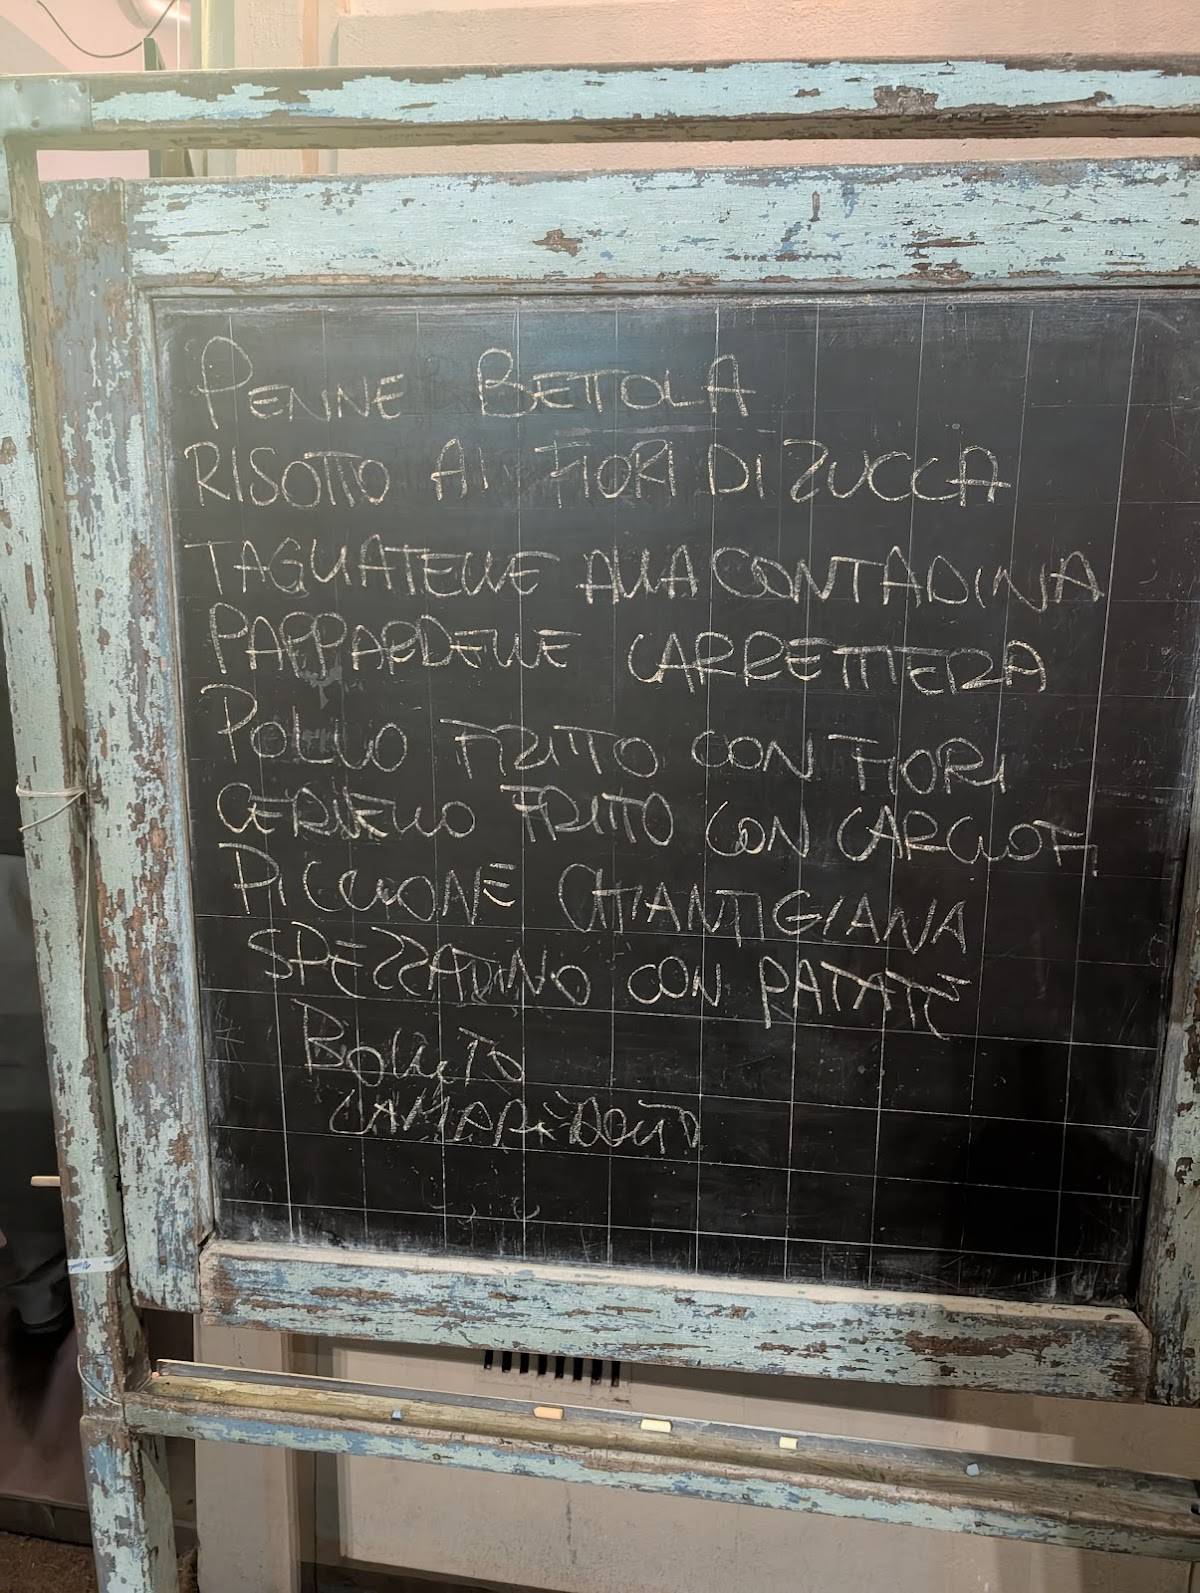 PENNE BETTOLA
RISOTTO AI FIORI DI ZUCCA
TAGLIATELLE ALLA CONTADINA
PAPPARDELLE CARRETTIERA
POLLO FRITTO CON FIORI
CERVELLO FRITTO CON CARCIOFI
PICCIONE CHIANTIGIANA
SPEZZATINO CON PATATE
BOLLITO
LAMPREDOTTO